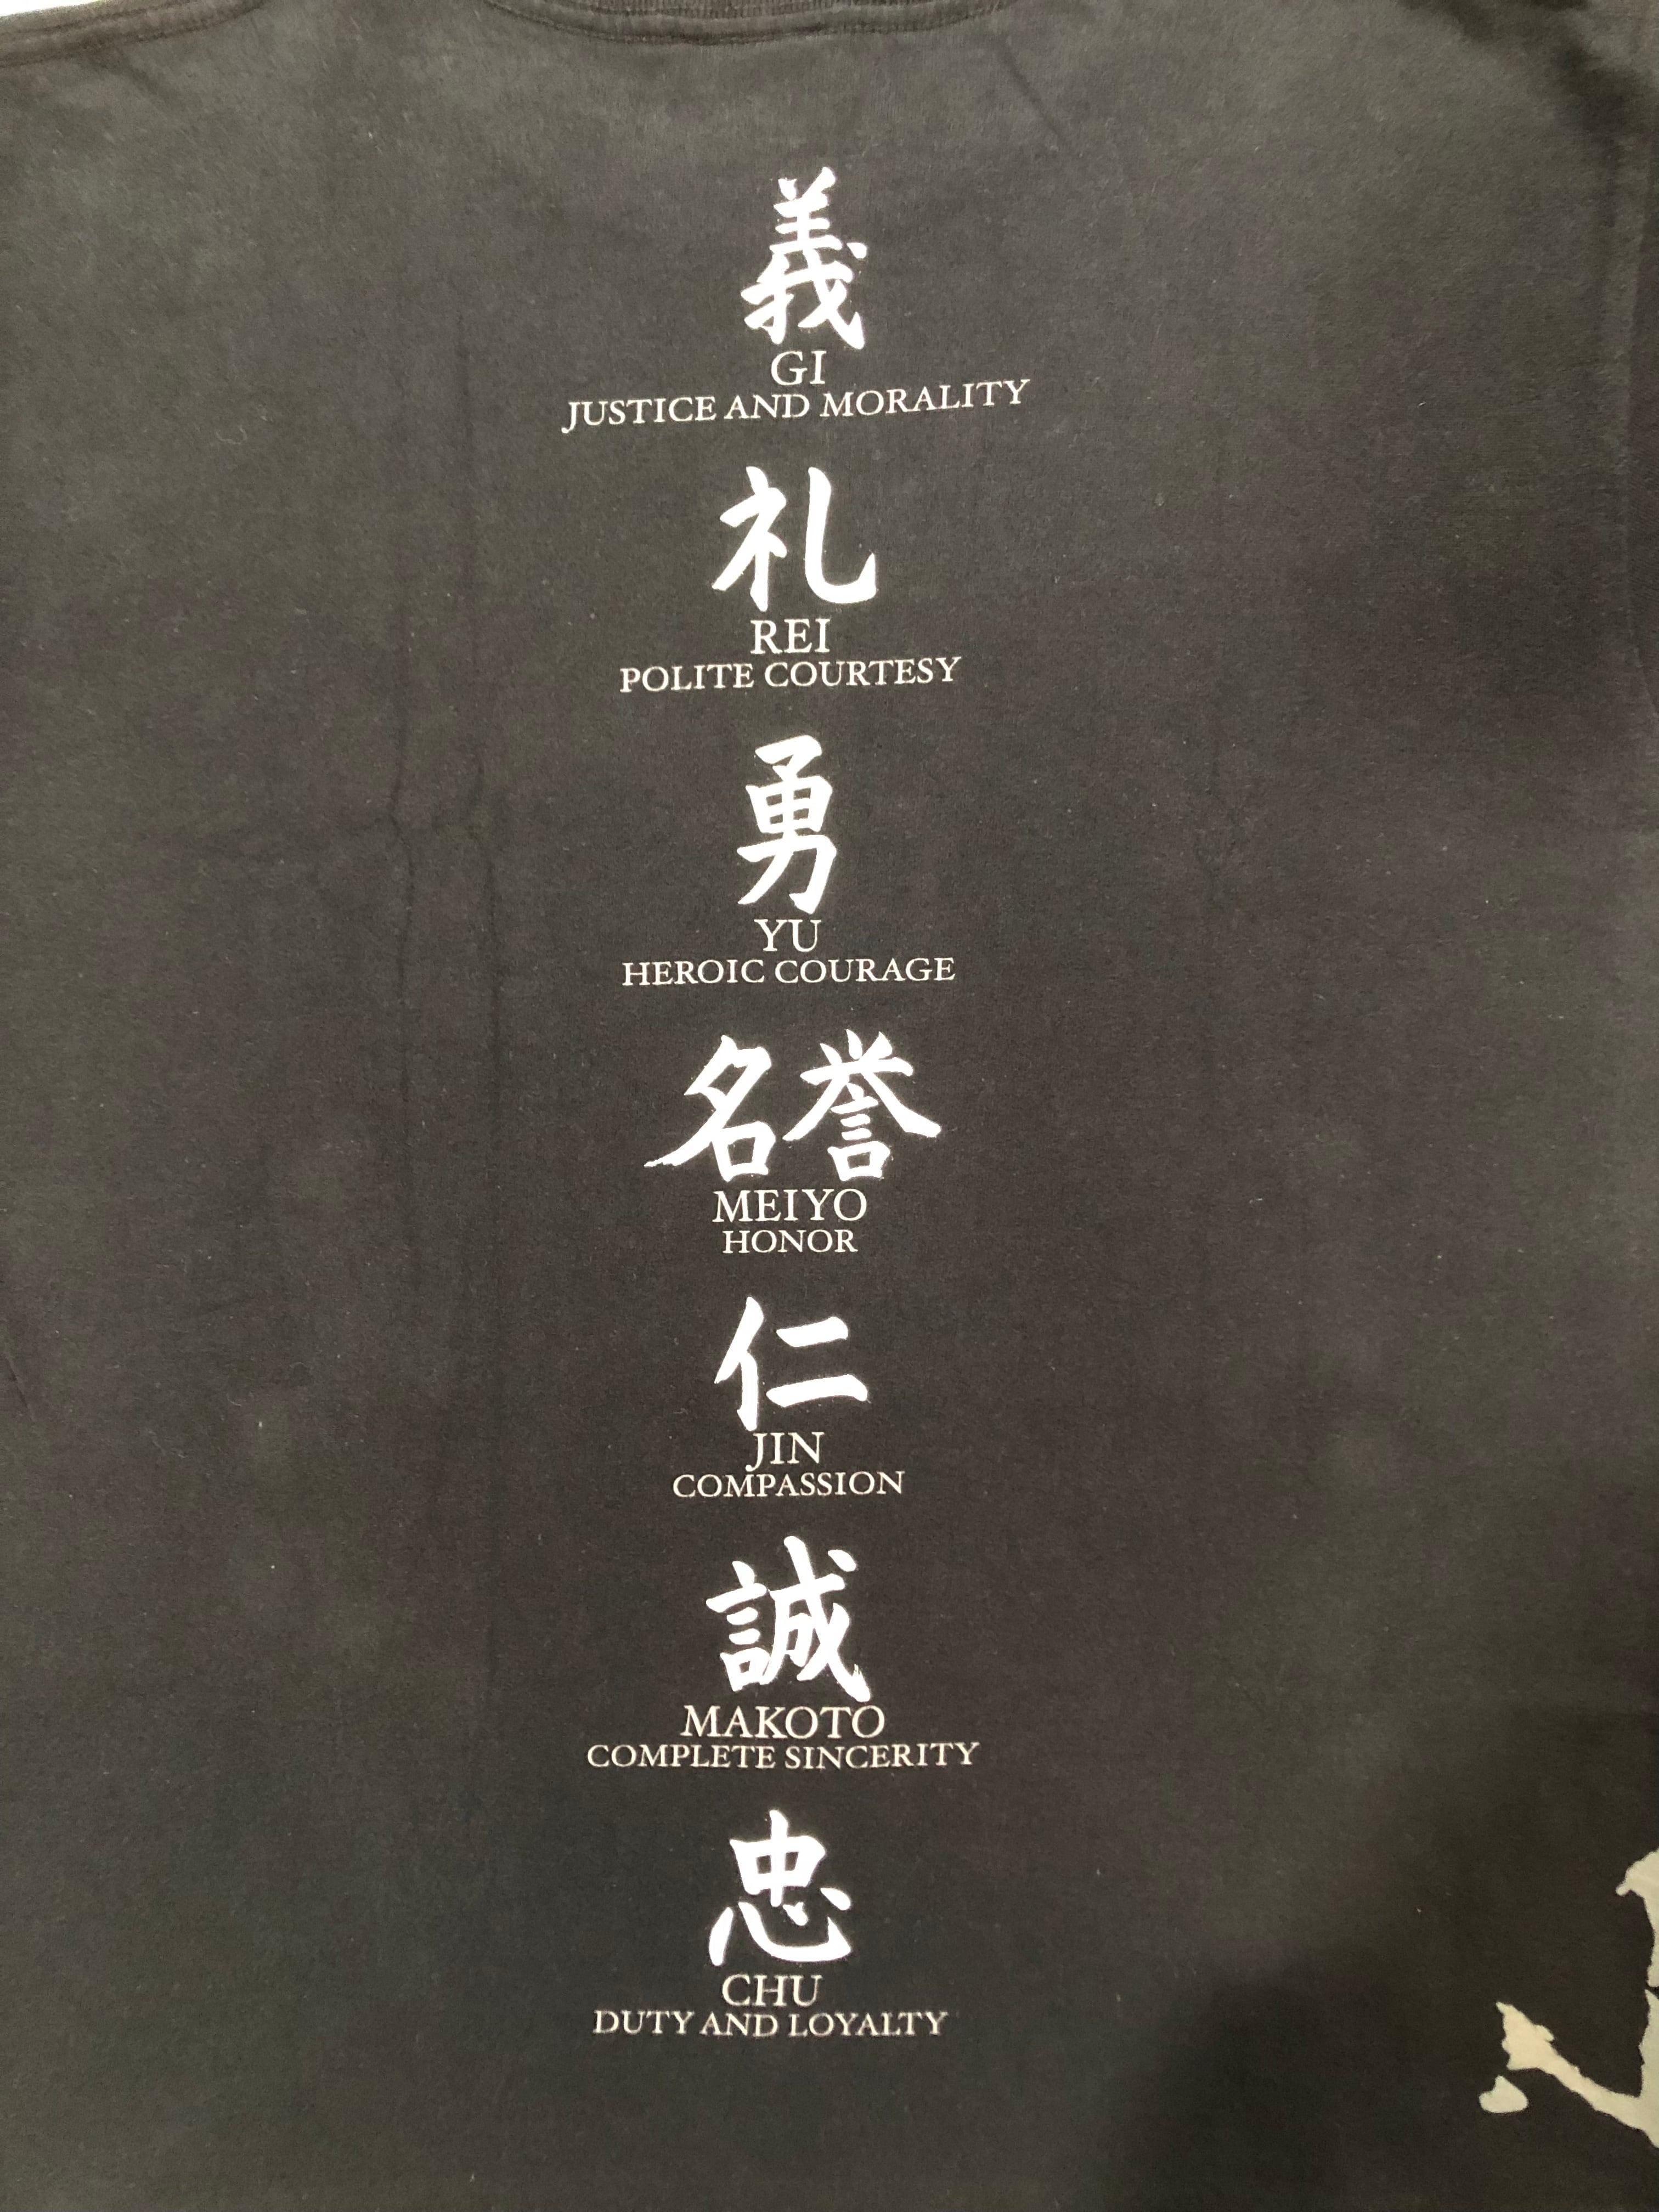 義
GI
JUSTICE AND MORALITY
礼
REI
POLITE COURTESY
勇
YU
HEROIC COURAGE
名誉
MEIYO
HONOR
仁
JIN
COMPASSION
誠
MAKOTO
COMPLETE SINCERITY
忠
CHU
DUTY AND LOYALTY